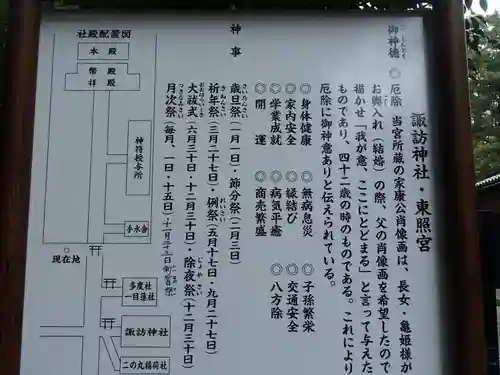 諏訪神社・東照宮
御神徳
ごしんとく
◎厄除 当宮所蔵の家康公肖像画は、長女・亀姫様が
お輿入れ(結婚)の際、父の肖像画を希望したので
描かせ「我が意、ここにとどまる」と言って与えた
ものであり、四十二歳の時のものである。これにより
厄除に御神意ありと伝えられている。
◎身体健康 ◎無病息災 ◎子孫繁栄
◎家内安全 ◎縁結び ◎交通安全
◎学業成就 ◎病気平癒 ◎八方除
◎開運 ◎商売繁盛
神事
歳旦祭(一月一日)・節分祭(二月三日)
祈年祭(三月二十七日)・例祭(五月十七日・九月二十七日)
大祓式(六月三十日・十二月三十日)・除夜祭(十二月三十日)
月次祭(毎月、一日・十五日)
社殿配置図
本殿
幣殿
拝殿
神符授与所
手水舎
現在地
多度社
一目連社
諏訪神社
二の丸稲荷社